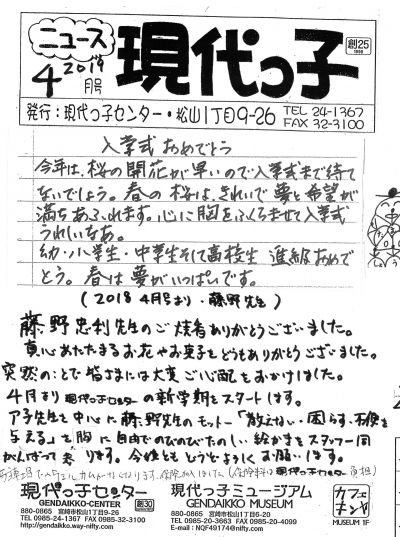 ニュース
2019
4月号
現代っ子
創25
発行:現代っ子センター・松山1丁目9-26
TEL 24-1367
FAX 32-3100
入学式 おめでとう
今年は、桜の開花が早いので入学式まで待て
ないでしょう。春の桜は、きれいで夢と希望が
満ちあふれます。心に胸をふくらませて入学式
うれしいなあ。
幼・小学生・中学生そして高校生 進級おめで
とう。春は夢がいっぱいです。
(2018 4月号より・藤野先生)
藤野忠利先生のご焼香ありがとうございました。
真心あたたまるお花やお菓子をどうもありがとうございました。
突然のことで皆さまには大変ご心配をおかけしました。
4月より現代っ子センターの新学期をスタートします。
ア子先生を中心に藤野先生のモットー「教えない・困らす・不便を
与える」を胸に自由でのびのびたのしい絵かきをスタッフ一同
がんばって参ります。今後ともどうぞよろしくお願いします。
現代っ子センター
GENDAIKKO-CENTER
創30
880-0865 宮崎市松山1丁目9-26
TEL 0985-24-1367 FAX 0985-32-3100
http://gendaikko.way-nifty.com
現代っ子ミュージアム
GENDAIKKO MUSEUM
880-0865 宮崎市松山1丁目9-26
TEL 0985-20-3663 FAX 0985-20-4099
E-mail:NQF49174@nifty.com
カフェ
MUSEUM 1F